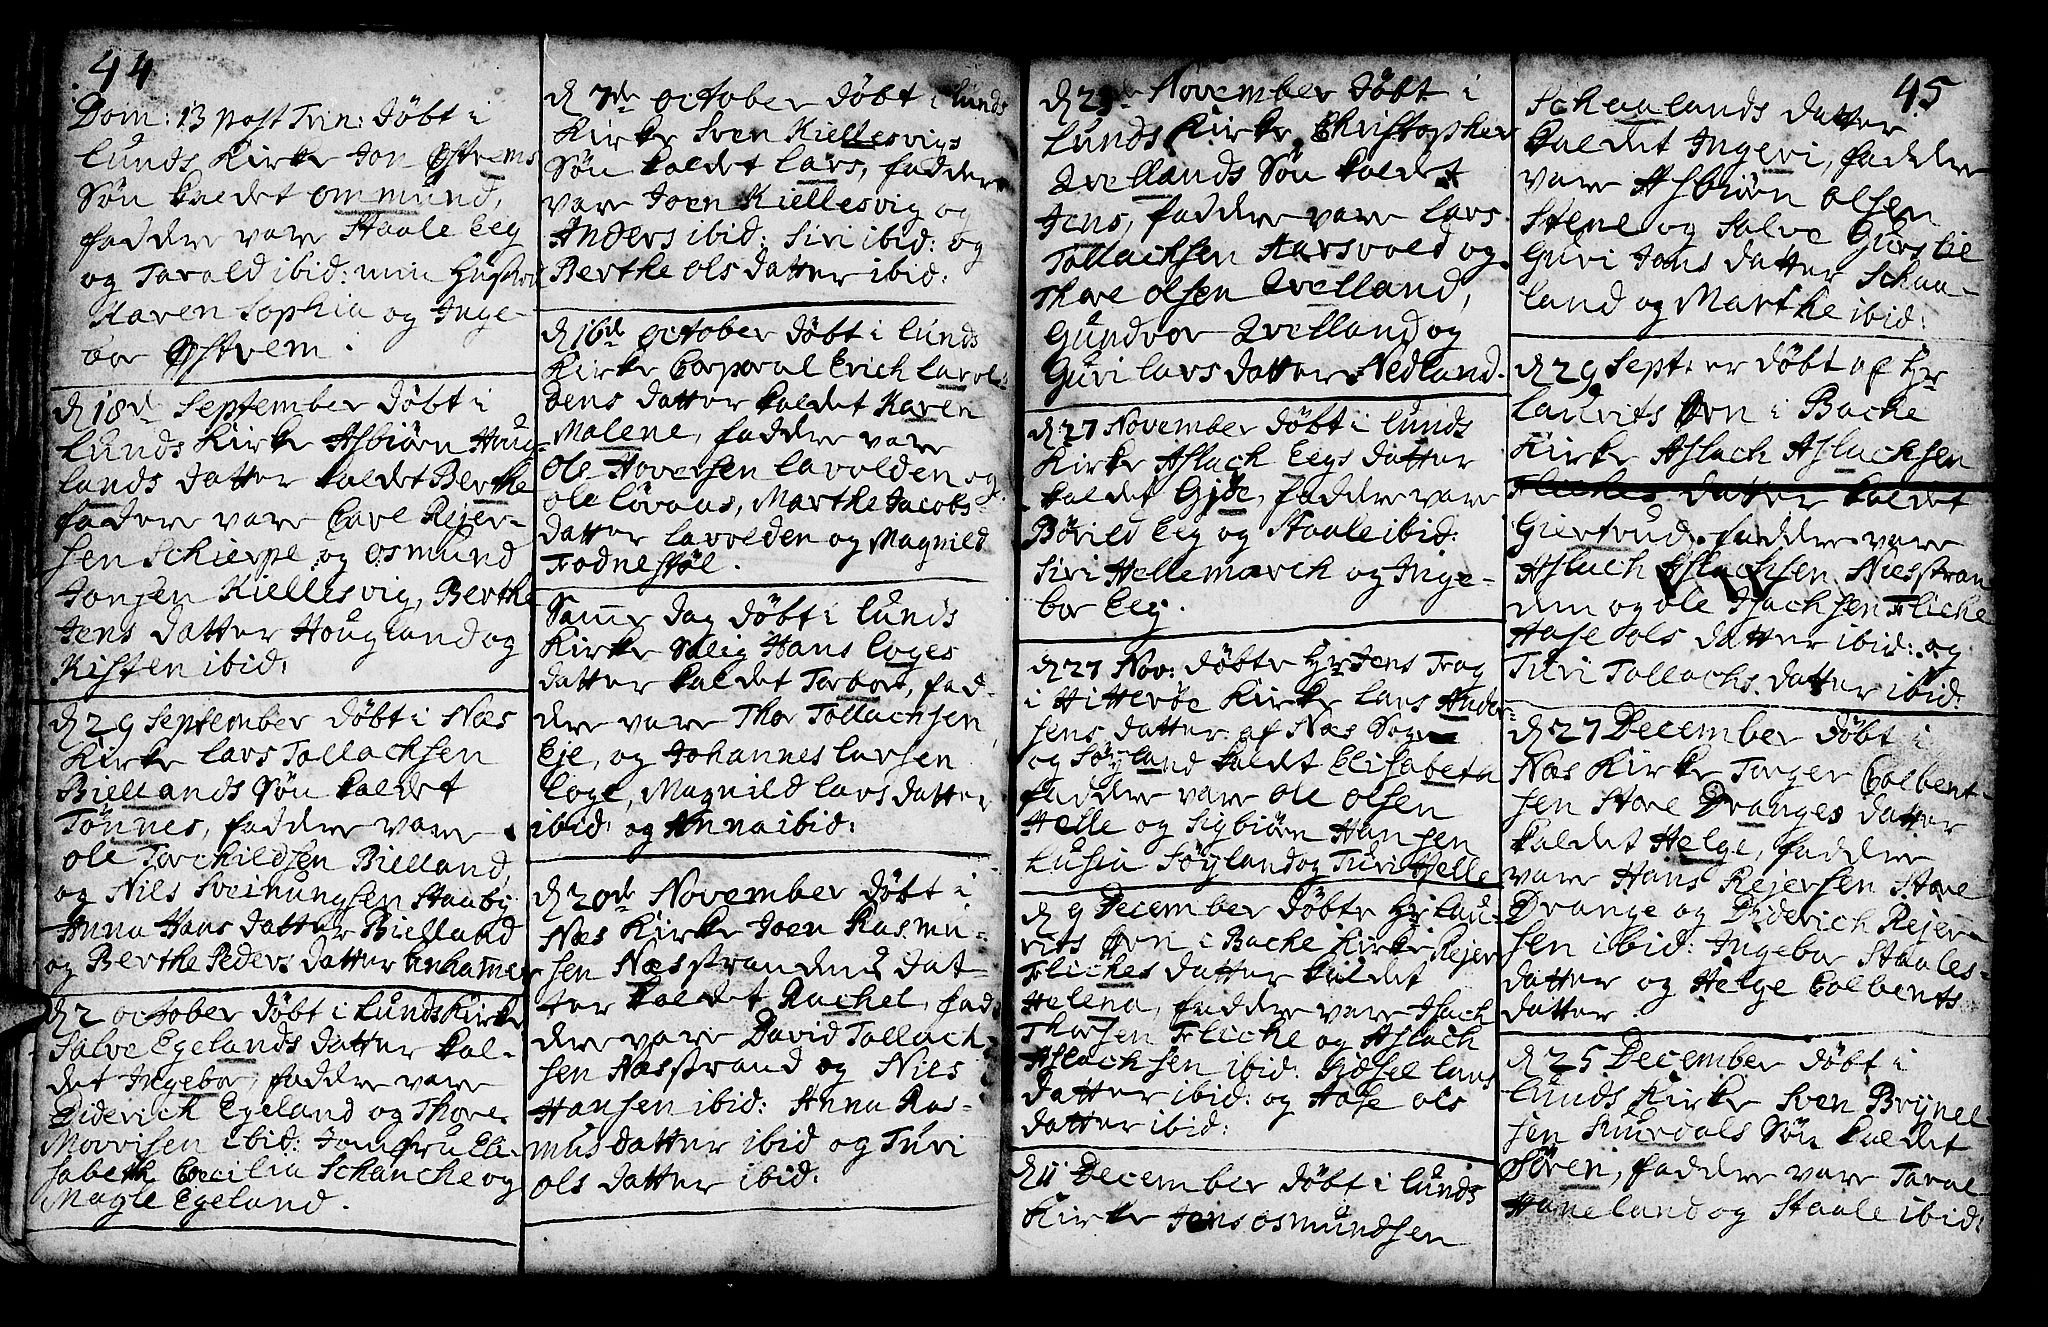 44
Dom: 13 post Trin: döbt i
Lunds Kirke Jon Østrems
Søn kaldet Ommund,
faddre vare Staale Eeg
og Tarald ibid: min Hustru
Karen Sophia og Inge-
bor Østrem.
d 18de September döbt i
Lunds Kirke Asbiørn Houg-
lands datter kaldet Berthe
fadere vare Carl Rejer-
sen Schierpe og Osmund
Jonsen Kiellesvig, Berthe
Jens datter Hougland og
Kisten ibid:
d 29 September döbt i Næs
Kirke Lars Tollachsen
Biellands Søn kaldet
Tönnes, faddre vare
Ole Torchildsen Bielland,
og Niels Sveinungsen Staaby
Anna Hans datter Bielland
og Berthe Peders datter
d 2 October döbt i Lunds Kirke
Salve Egelands datter kal-
det Ingebor, faddre vare
Diderich Egeland og Thore
Morrisen ibid: Jomfru Eli-
sabeth Cecilia Schanche og
Magle Egeland.
d 7de October döbt i Lunds
Kirke Sven Kiellesvigs
Søn kaldet Lars, faddere
vare Joen Kiellesvig og
Anders ibid: Siri ibid: og
Berthe Ols datter ibid:
d 16de October döbt i Lunds
Kirke Corporal Erich Lavol-
dens datter kaldet Karen
Malene, faddre vare
Ole Hoversen Lavolden og
Ole Løvaas, Marthe Jacobs
datter Lavolden og Magnild
Fodnestøl.
Samme dag döbt i Lunds
Kirke Salig Hans Eoges
datter kaldet Torbor, fad-
dre vare Thor Tollachsen
Eje, og Johannes Larsen
Eoge, Magnild Lars datter
ibid: og Anna ibid:
d 20de November döbt i
Næs Kirke Joen Rasmu-
sen Næsstrandens dat-
ter kaldet Rachel, fad-
dre vare David Tollach-
sen Næsstrand og Niels
Hansen ibid: Anna Ras-
mus datter ibid og Turi
Ols datter ibid:
d 23de November döbt i
Lunds Kirke Christopher
Qvellands Søn kaldet
Jens, faddre vare Lars
Tollachsen Aarsvold og
Thore Olsen Qvelland,
Gundvor Qvelland og
Guri Lars datter Nedland.
d 27 November döbt i Lunds
Kirke Aslach Eegs datter
kaldet Gjöe, faddre vare
Börild Eeg og Staale ibid:
Siri Hellemarck og Inge-
bor Eeg.
d 27 Nov: döbte Hr Jens Trag
i Hitteröe Kirke Lars Ander-
sens datter af Næs Sogn
og Söyland kaldet Elisabeth
faddre vare Ole Olsen
Helle og Sigbiörn Hansen
Lusia Söyland og Turi Helle
d 9 December döbte Hr Lau-
rits Ørn i Bache Kirke Rejer
Fliches datter kaldet
Helena, faddre vare Isach
Thorsen Fliche og Aslach
Aslachsen ibid: Gidsel Lars
datter ibid: og Aase Ols
datter ibid:
d 11 December döbt i Lunds
Kirke Jens Osmundsen
45
Schaalands datter
kaldet Ingeri, faddre
vare Asbiörn Olsen
Stene og Salve Gursлie
Guri Jons datter Schaa-
land og Marthe ibid:
d 29 Sept: er döbt af Hr
Laurits Ørn i Bache
Kirke Aslach Aslachsen
Fliches datter kaldet
Giertrud, faddre vare
Aslach Aslachsen Næsstran
den og Ole Isachsen Fliche
Aase Ols datter ibid: og
Turi Tollachs datter ibid:
d 27 December döbt i
Næs Kirke Torger Colbent-
sen Store Dranges datter
kaldet Helge, faddre
vare Hans Rejersen Store
Drange og Diderich Rejer-
sen ibid: Ingebor Staales-
datter og Helge Colbents
datter.
d 25 December döbt i
Lunds Kirke Sven Brynel
sen Skurdals Søn kaldet
Sören, faddre vare Taral
Haneland og Staale ibid: